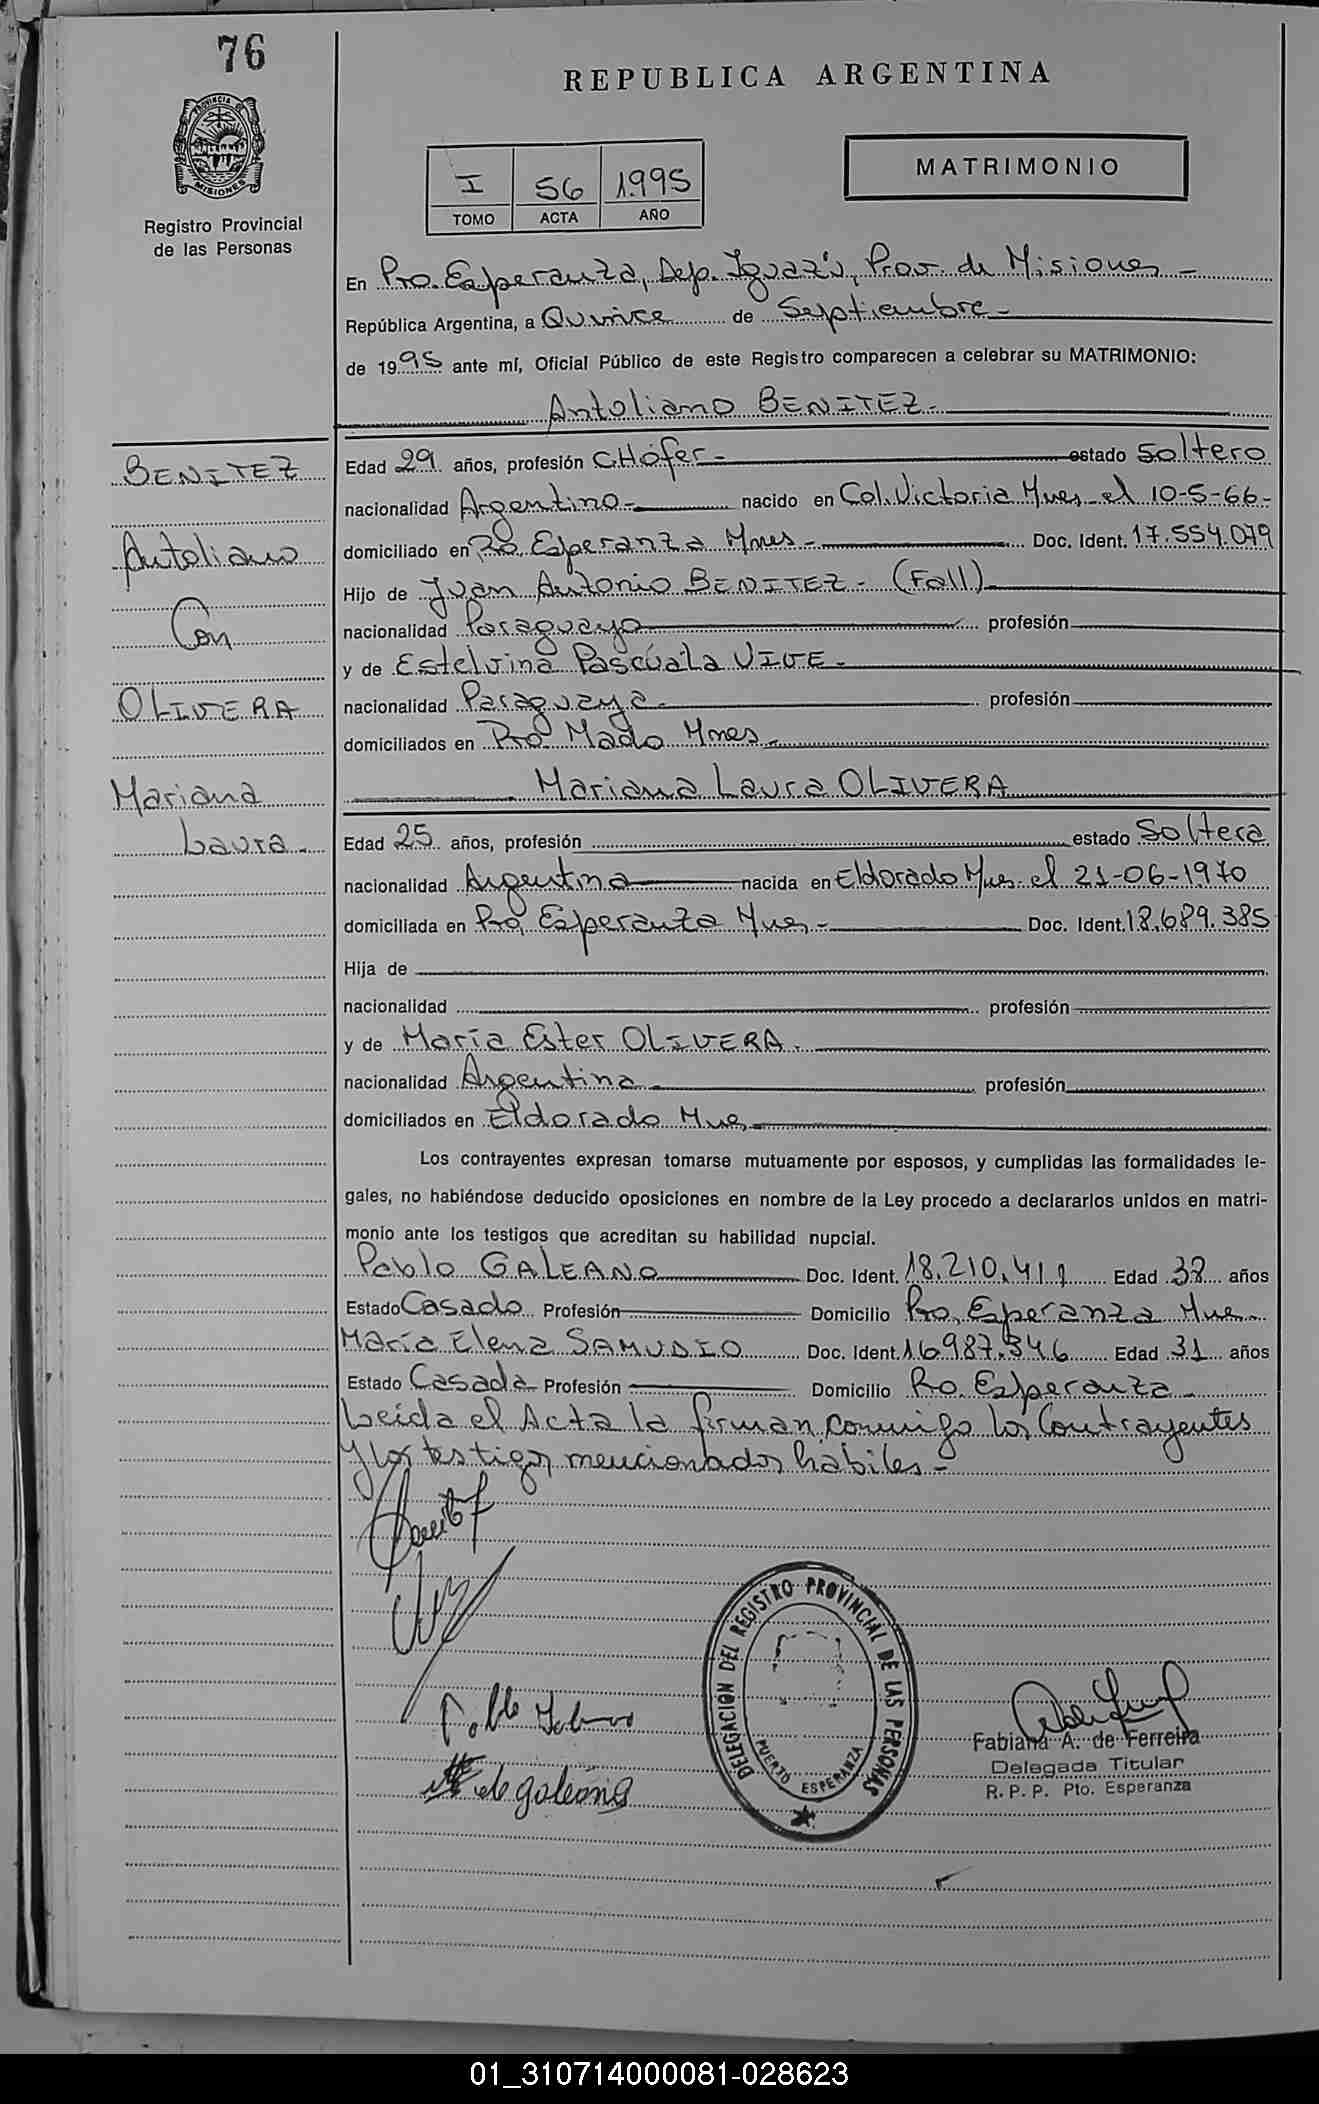 76
REPUBLICA ARGENTINA
PROVINCIA DE MISIONES
Registro Provincial
de las Personas
I 56 1995
TOMO ACTA AÑO
MATRIMONIO
En Pto. Esperanza, Dep. Iguazú, Prov. de Misiones -
República Argentina, a Quince de Septiembre -
de 1995 ante mí, Oficial Público de este Registro comparecen a celebrar su MATRIMONIO:
Antoliano BENITEZ -
BENITEZ
Antoliano
Con
OLIVERA
Mariana
Laura -
Edad 29 años, profesión CHófer - estado Soltero
nacionalidad Argentino - nacido en Col. Victoria Mnes - el 10-5-66 -
domiciliado en Pto. Esperanza Mnes - Doc. Ident. 17.554.079
Hijo de Juan Antonio BENITEZ - (Fall)
nacionalidad Paraguayo profesión
y de Estelvina Pascuala VIVE -
nacionalidad Paraguaya - profesión
domiciliados en Pto Mado Mnes -
Mariana Laura OLIVERA
Edad 25 años, profesión estado Soltera
nacionalidad Argentina nacida en Eldorado Mnes el 21-06-1970
domiciliada en Pto. Esperanza Mnes - Doc. Ident. 18.689.385
Hija de
nacionalidad profesión
y de María Ester OLIVERA -
nacionalidad Argentina - profesión
domiciliados en Eldorado Mnes
Los contrayentes expresan tomarse mutuamente por esposos, y cumplidas las formalidades le-
gales, no habiéndose deducido oposiciones en nombre de la Ley procedo a declararlos unidos en matri-
monio ante los testigos que acreditan su habilidad nupcial.
Pablo GALEANO Doc. Ident. 18.210.411 Edad 38 años
Estado Casado Profesión Domicilio Pto. Esperanza Mnes
María Elena SAMUDIO Doc. Ident. 16987.346 Edad 31 años
Estado Casada Profesión Domicilio Pto. Esperanza -
Leida el Acta la firman conmigo los Contrayentes
y los testigos mencionados hábiles -
DELEGACION DEL REGISTRO PROVINCIAL DE LAS PERSONAS
PUERTO ESPERANZA
de galeano
Fabiana A. de Ferreira
Delegada Titular
R. P. P. Pto. Esperanza
01_310714000081-028623